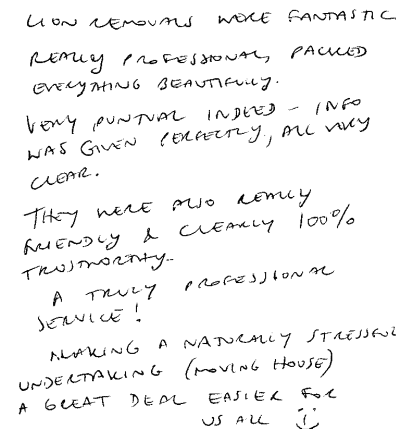 LION REMOVALS WERE FANTASTIC
REALLY PROFESSIONAL, PACKED
EVERYTHING BEAUTIFULLY.
VERY PUNTUAL INDEED - INFO
WAS GIVEN PERFECTLY, ALL VERY
CLEAR.
THEY WERE ALSO REALLY
FRIENDLY & CLEARLY 100%
TRUSTWORTHY..
A TRULY PROFESSIONAL
SERVICE!
MAKING A NATURALLY STRESSFUL
UNDERTAKING (MOVING HOUSE)
A GREAT DEAL EASIER FOR
US ALL :)